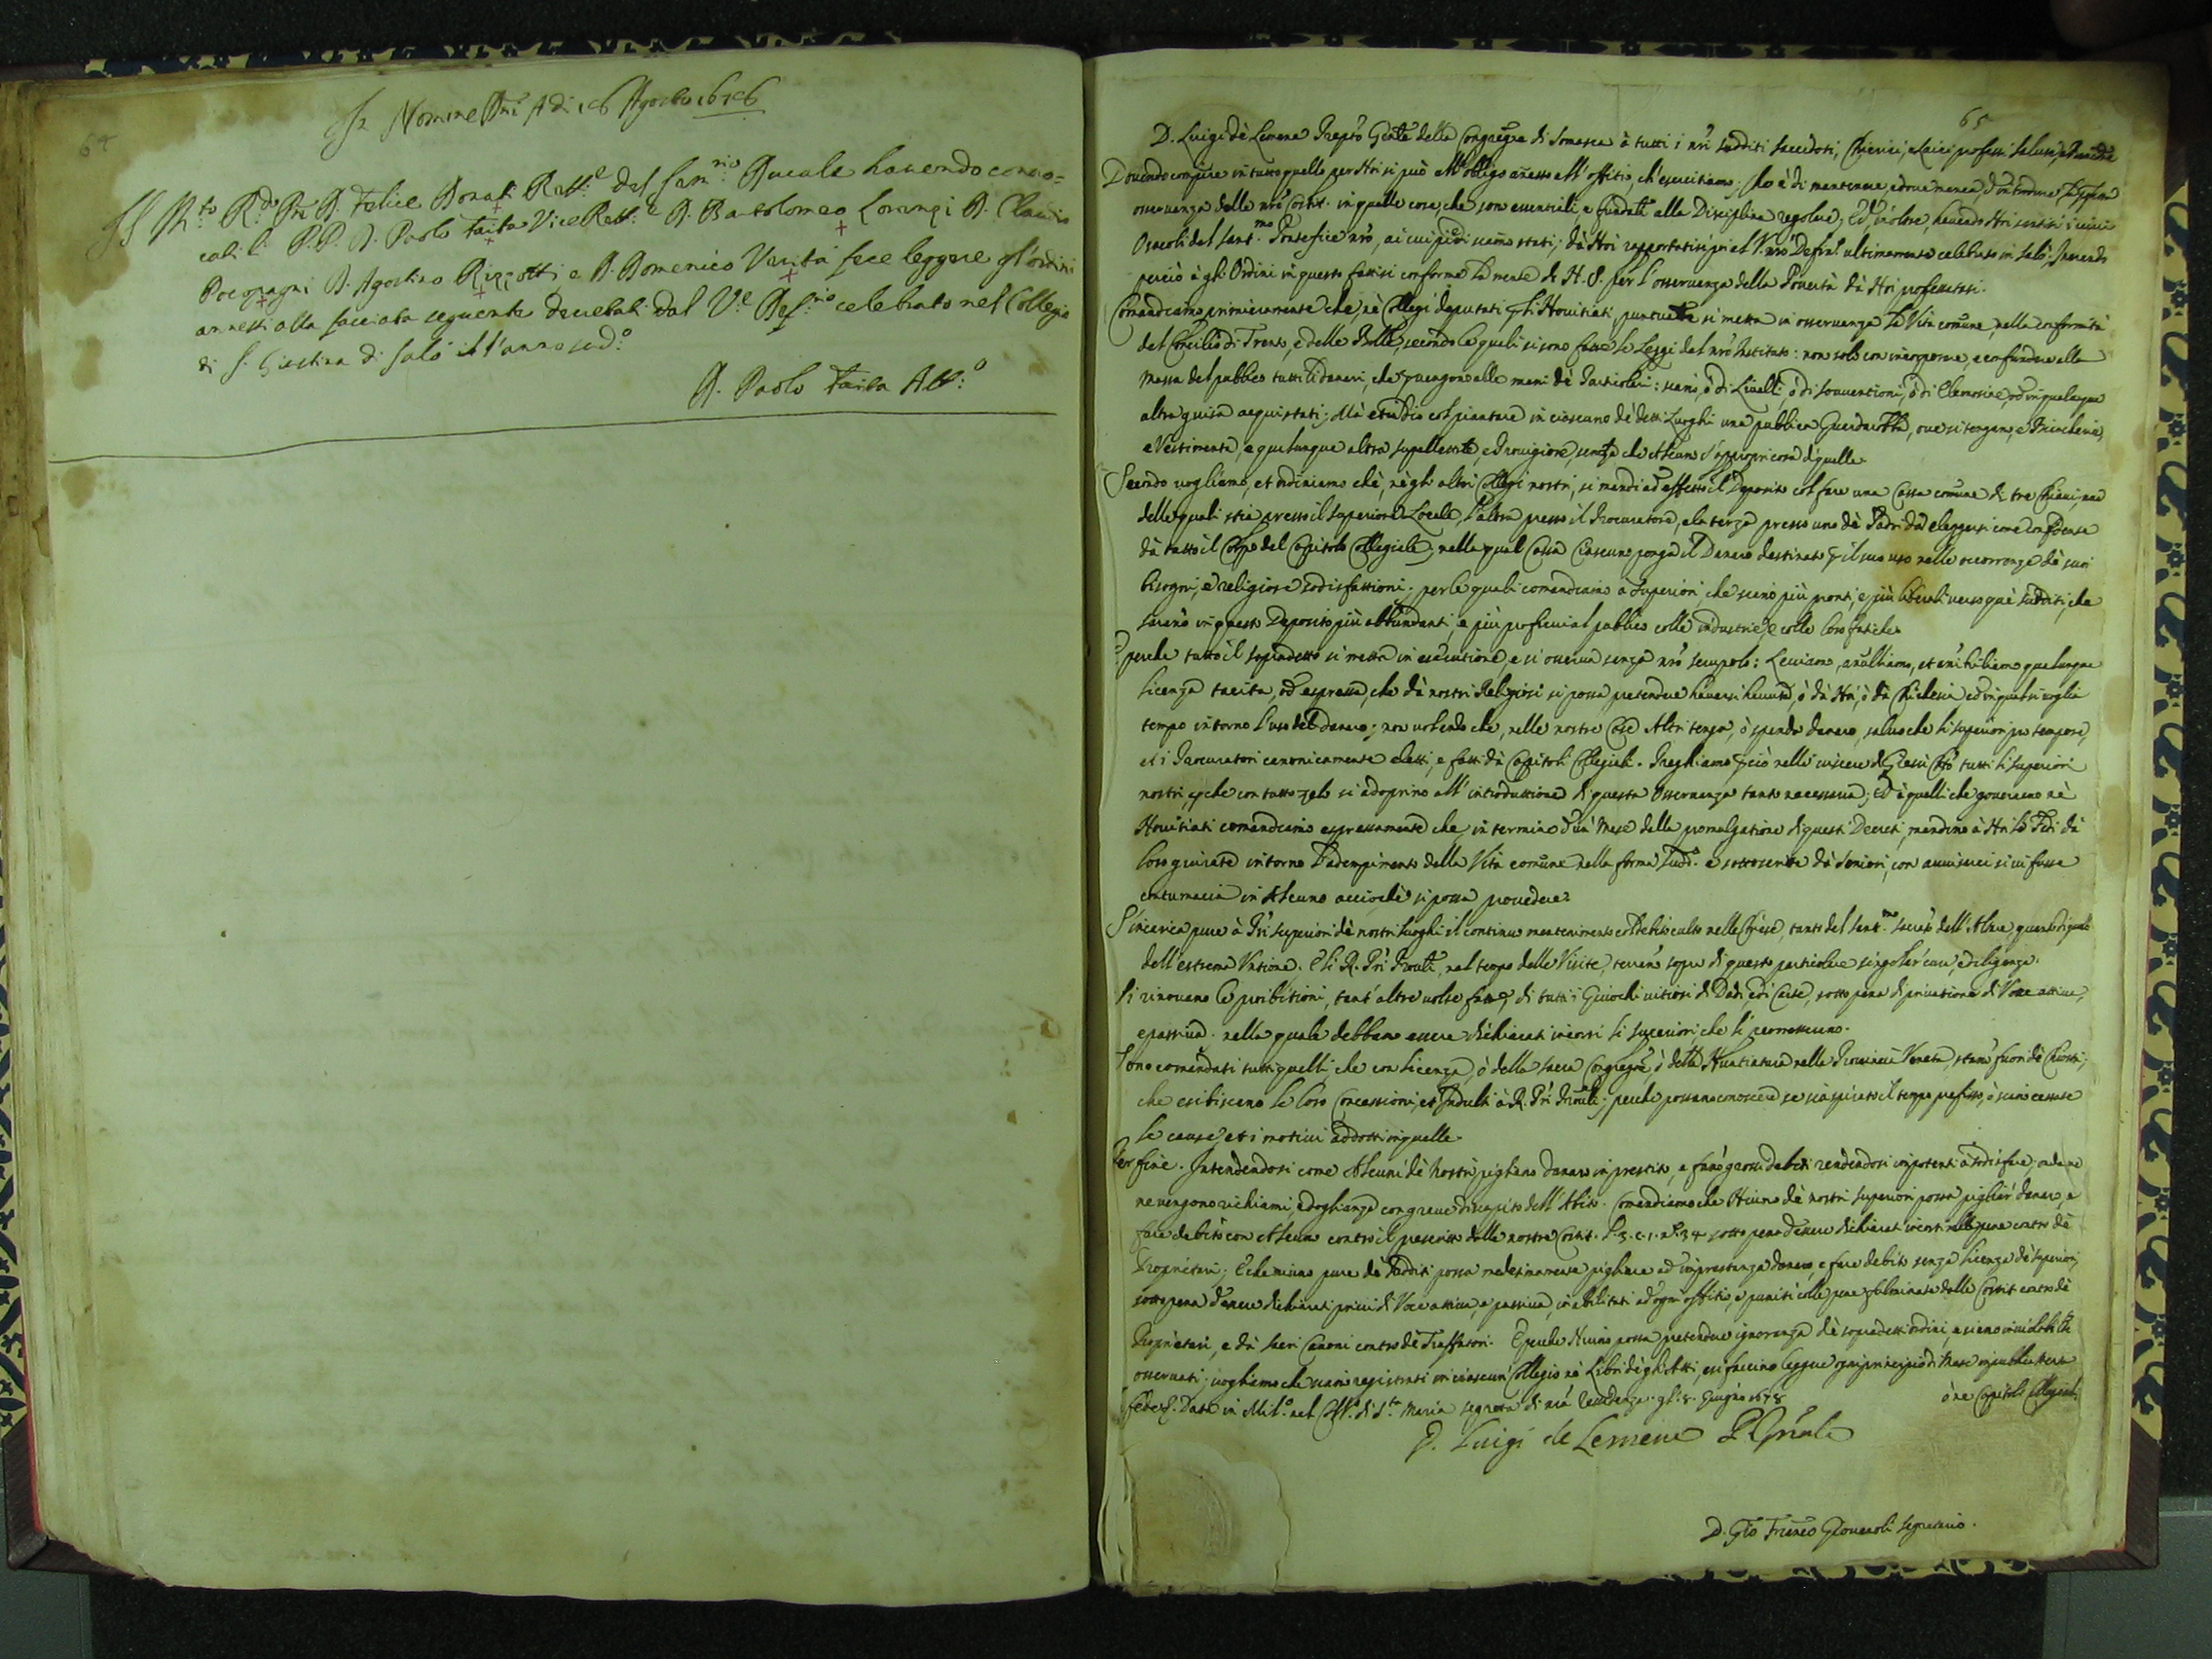 64
In Nomine Dni Adi 16 Agosto 1678
Il M.to R.do Pre D. Felice Donati Rett.e del Sem.rio Ducale havendo convo=
cati li P.P. D. Paolo Taita Vice Rett.e D. Bartolomeo Lorenzi D. Claudio
D. Agostino Rizzotti, e D. Domenico Varità fece leggere gl'ordini
annessi alla facciata seguente decretati dal V.e Def.rio celebrato nel Collegio
di S. Giustina di Salò l'anno sud.o
D. Paolo Taita Att.o
65
D. Luigi de Lemene Prep.to Gñale della Congregne di Somasca à tutti i nři sudditi Sacerdoti, Chierici, e Laici professi salute
Dovendo compire in tutto quello per Noi si può all'obligo annesso all'offitio, ch'esercitiamo, che è di mantenere, ed ove manca, d'introdurre
osservanza delle nře Costit. in quelle cose, che sono essentiali, e fondatti alla Disciplina regolare; Ed in oltre, havendo Noi sentiti i
Oracoli del Sant.mo Pontefice nřo, ai cui piedi siamo stati, dà Noi rapportatisi poi al V. nřo Defin. ultimamente celebrato in Salò. Inerendo
perciò à gli Ordini in questo fattisi conforme la mente di N. S. per l'osservanza della Povertà dà Noi professata.
Comandiamo primieramente che nè Collegi deputati p li Novitiati, si metta in osservanza la Vita comune, nella conformità
del Concilio di Trento, e delle Bolle, secondo le quali si sono fatte le Leggi del nřo Instituto: non solo con incorporare, e confondere alla
Massa del publico tutti li danari, che pvengono alle mani dè Particolari: siano, ò di Livelli, ò di sovventioni, ò di Elemosine, od in qualunque
altra guisa acquistati; Mà etiandio col piantare in ciascuno dè detti Luoghi una publica Guardarobba, ove si tengano, e Biancherie,
e Vestimenta, e qualunque altra supellettile, e provigione, senza che alcuno s'approprij cosa di quelle.
Secondo vogliamo, et ordiniamo chè, nègli altri Collegi nostri, si mandi ad effetto il Deposito col fare una Cassa comune di tre Chiavi, una
delle quali stia presso il Superiore Locale, l'altra presso il Procuratore, e la terza presso uno dè Padri da eleggersi come
dà tutto il Corpo del Capitolo Collegiale; nella qual Cassa ciascuno ponga il Danaro destinato p il suo uso nelle occorrenze dè suoi
bisogni, e religiose sodisfattioni; per le quali comandiamo à Superiori che siano più pronti, e più liberali verso què sudditi, che
saranno in questo Deposito più abbondanti, e più proficui al publico colle industrie, e colle loro fatiche.
E perche tutto il sopradetto si metta in esecutione, e si osservi senza nřo scrupolo: Leviamo, annulliamo, et annihiliamo qualunque
licenza tacita, od espressa, che dà nostri Religiosi si possa pretendere haversi havuta, ò dà Noi, ò da Chi che sia ed in qual si voglia
tempo intorno l'uso del danaro; non volendo che, nelle nostre Case Altri tenga, ò spenda danaro, salvo che li superiori pro tempore,
et i Procuratori canonicamente eletti, e fatti dà Capitoli Collegiali. Preghiamo pciò nelle viscere di Giesù Cřto tutti li Superiori
nostri, pche con tutto zelo si adoprino all'introduttione di questa Osservanza tanto necessaria; Ed à quelli che governano nè
Novitiati comandiamo espressamente che in termine d'un Mese della promulgatione di questi Decreti, mandino à Noi le Fedi dà
loro giurate intorno l'adempimento della Vita comune nella forma sudd.a e sottoscritte dà Seniori, con avvisarci se vi fusse
contumacia in Alcuno acciochè si possa provedere.
S'incarica pure à Pri Superiori dè nostri luoghi il continuo mantenimento col debito culto nelle Chiese, tanto del Sant.mo dell'Altare, quanto di quello
dell'estrema Untione. E li R. Pri Provli, nel tempo delle Visite, terrano sopra di questo particolare singolar cura, e diligenza.
Si rinovano le proibitioni, tant'altre volte fatte, di tutti i Giuochi vitiosi di Dadi, e di Carte, sotto pena di privatione di Voce attiva,
e passiva: nella quale debbano essere dichiarati incorsi li Superiori, che li permettessero.
Sono comandati tutti quelli, che con licenza, ò della Sacra Congregne, ò della Nuntiatura nella Provincia Veneta, stanno fuori dè Chiostri,
che esibiscano le loro Concessioni, et Indulti à R. Pri Provli; perche possano conoscere se sia spirato il tempo prefisso, ò siano cessate
le cause, et i motivi addotti in quelle.
Per fine. Intendendosi come Alcuni dè nostri pigliano danaro in prestito, e fanno grossi debiti rendendosi impotenti à sodisfare; onde ne
ne vengono richiami, e doglianze con grave discapito dell'Abito. Comandiamo che Niuno dè nostri Superiori possa pigliar danaro, e
fare debito con Alcuno contro il prescritto delle nostre Costit. L. 3. c. 1. n. 34 sotto pena d'essere dichiarati incorsi nelle pene contro dè
Proprietari; E che niuno pure dè sudditi possa medesimamente pigliare ad imprestanza danaro, e fare debito senza licenza dè superiori
sotto pena d'essere dichiarati privi di Voce attiva, e passiva, inabilitati ad ogni offitio, e puniti colle pene fulminate dalle Costit. contro dè
Proprietari, e dà Sacri Canoni contro dè Trasgressori. E perche Niuno possa pretendere ignoranza dè sopradetti ordini, e siano inviolabilte
osservati, vogliamo che siano registrati in ciascun Collegio nè Libri dègli Atti, e si faccino leggere ogni principio di Mese in publica Mensa
ò nè Capitoli Collegiali.
In fede &. Data in Mil.o nel Coll.o di S.ta Maria Segreta di nřa residenza gl'8 Giugno 1678
D. Luigi de Lemene P. Gñale
D. Gio Franco Giovenoli Segretario.